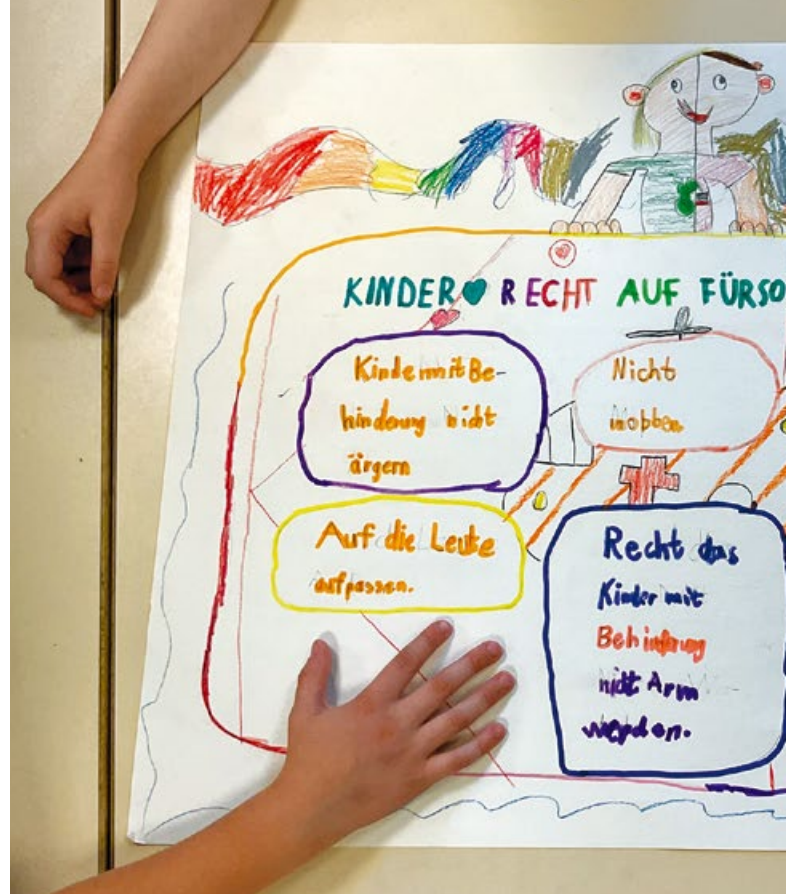 KINDER RECHT AUF FÜRSO
Kinde mit Be-
hinderung nicht
ärgern
Nicht
mobben
Auf die Leute
aufpassen.
Recht das
Kinder mit
Behinderung
nicht Arm
werden.